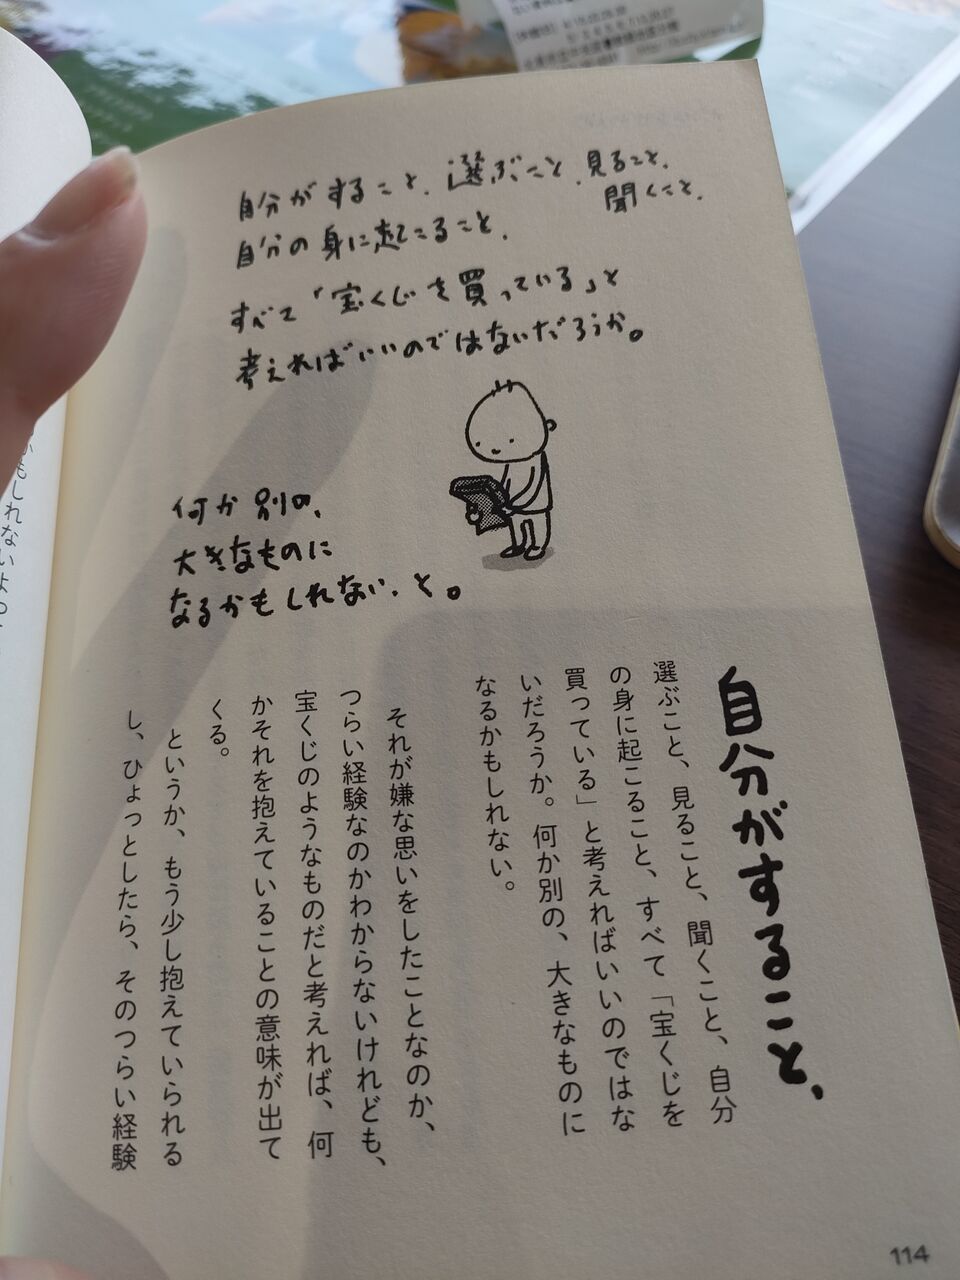 自分がすること、選ぶこと、見ること、
聞くこと、
自分の身に起こること、
すべて「宝くじを買っている」と
考えればいいのではないだろうか。
何か別の、
大きなものに
なるかもしれない、と。
自分がすること、
選ぶこと、見ること、聞くこと、自分
の身に起こること、すべて「宝くじを
買っている」と考えればいいのではな
いだろうか。何か別の、大きなものに
なるかもしれない。
それが嫌な思いをしたことなのか、
つらい経験なのかわからないけれども、
宝くじのようなものだと考えれば、何
かそれを抱えていることの意味が出て
くる。
というか、もう少し抱えていられる
し、ひょっとしたら、そのつらい経験
114